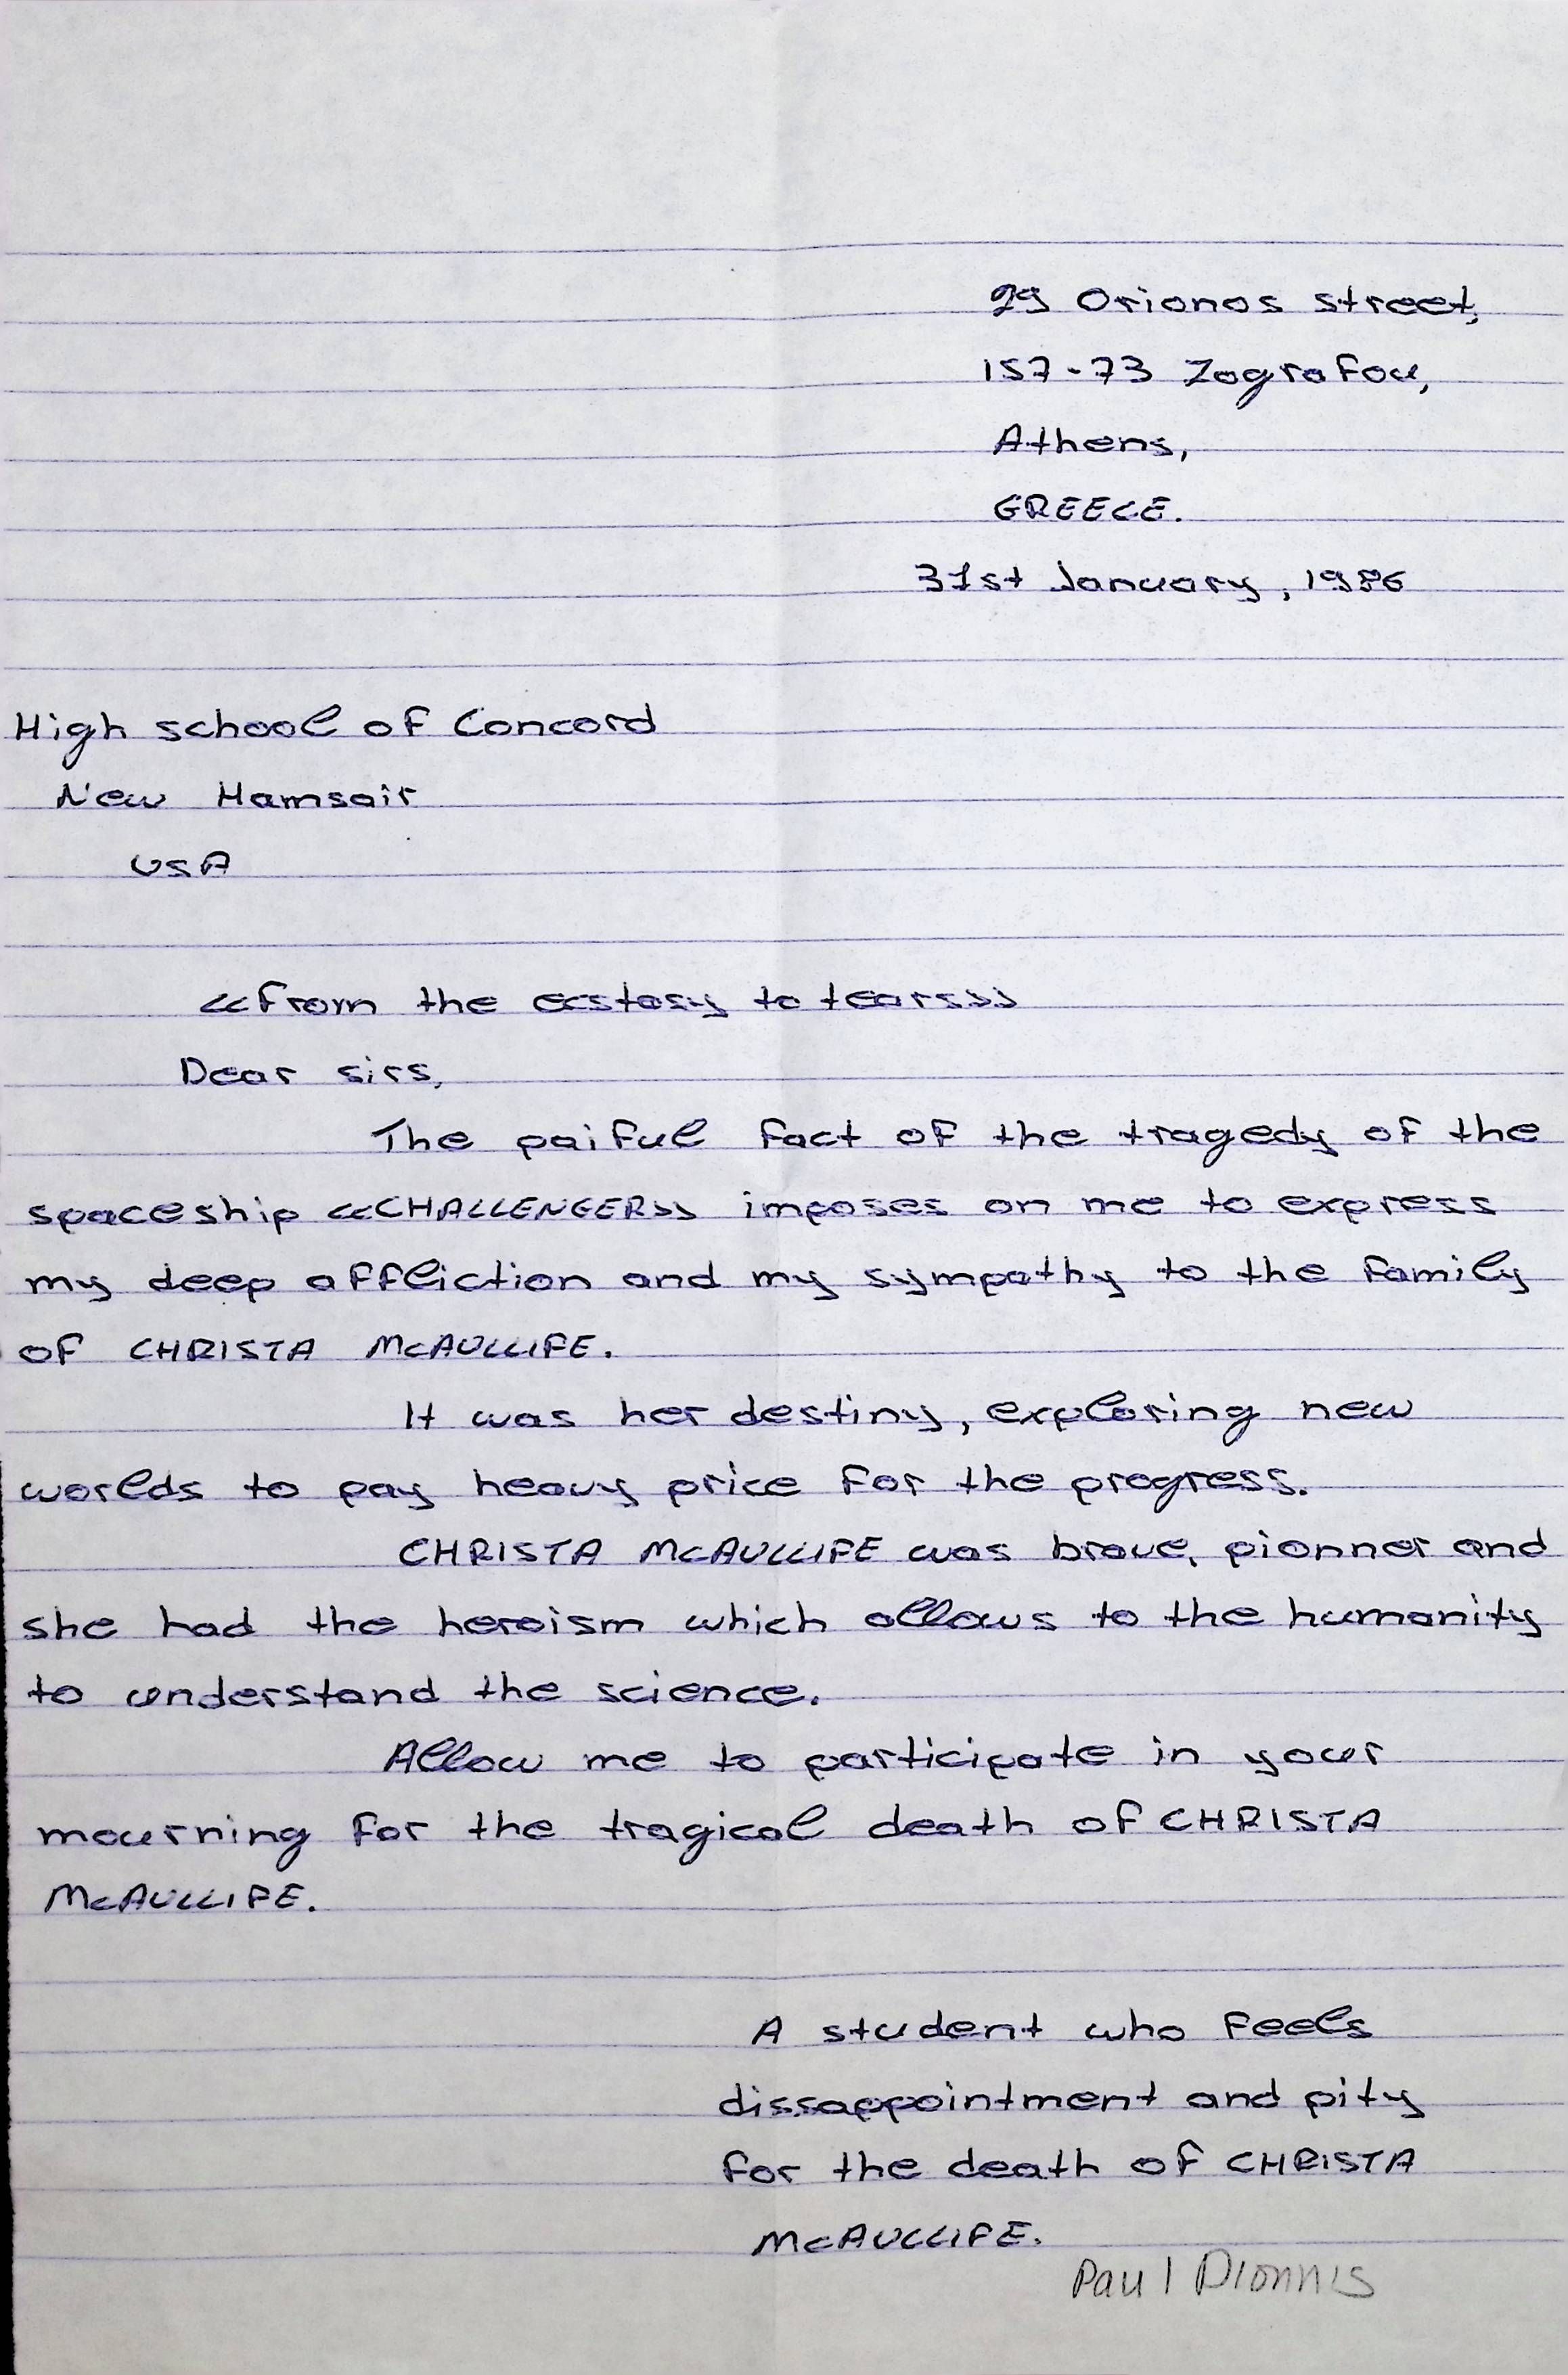 29 Orionos street,
157-73 Zografou,
Athens,
GREECE.
31st January, 1986
High school of Concord
New Hamsair
USA
<<From the ecstasy to tears>>
Dear sirs,
The paiful fact of the tragedy of the
spaceship <<CHALLENGER>> imposes on me to express
my deep affliction and my sympathy to the family
of CHRISTA McAULLIFE.
It was her destiny, exploring new
worlds to pay heavy price for the progress.
CHRISTA McAULLIFE was brave, pionner and
she had the heroism which allows to the humanity
to understand the science.
Allow me to participate in your
mourning for the tragical death of CHRISTA
McAULLIFE.
A student who feels
dissappointment and pity
for the death of CHRISTA
McAULLIFE.
Paul Dionnis